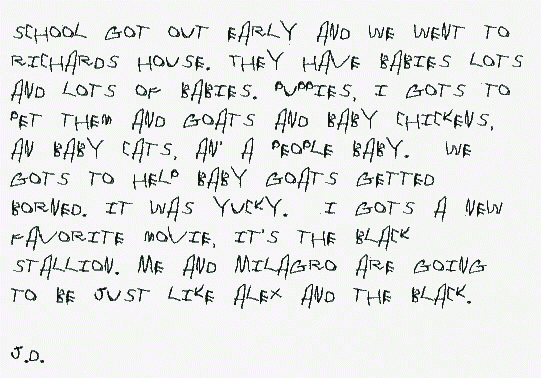 SCHOOL GOT OUT EARLY AND WE WENT TO
RICHARDS HOUSE. THEY HAVE BABIES LOTS
AND LOTS OF BABIES. PUPPIES, I GOTS TO
PET THEM AND GOATS AND BABY CHICKENS,
AN BABY CATS, AN' A PEOPLE BABY. WE
GOTS TO HELP BABY GOATS GETTED
BORNED. IT WAS YUCKY. I GOTS A NEW
FAVORITE MOVIE, IT'S THE BLACK
STALLION. ME AND MILAGRO ARE GOING
TO BE JUST LIKE ALEX AND THE BLACK.
J.D.